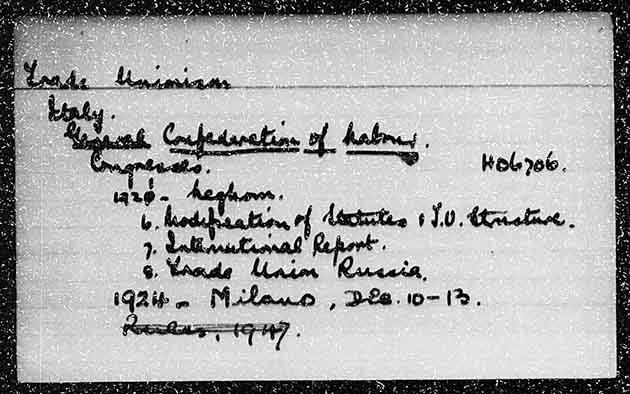 Trade Unionism
Italy.
General Confederation of Labour.
Congresses. HD6706.
Leghorn.
6. Modification of Statutes & T.U. Structure.
7. International Report.
8. Trade Union Russia.
1924 - Milano, Dec. 10-13.
Rules, 1947.